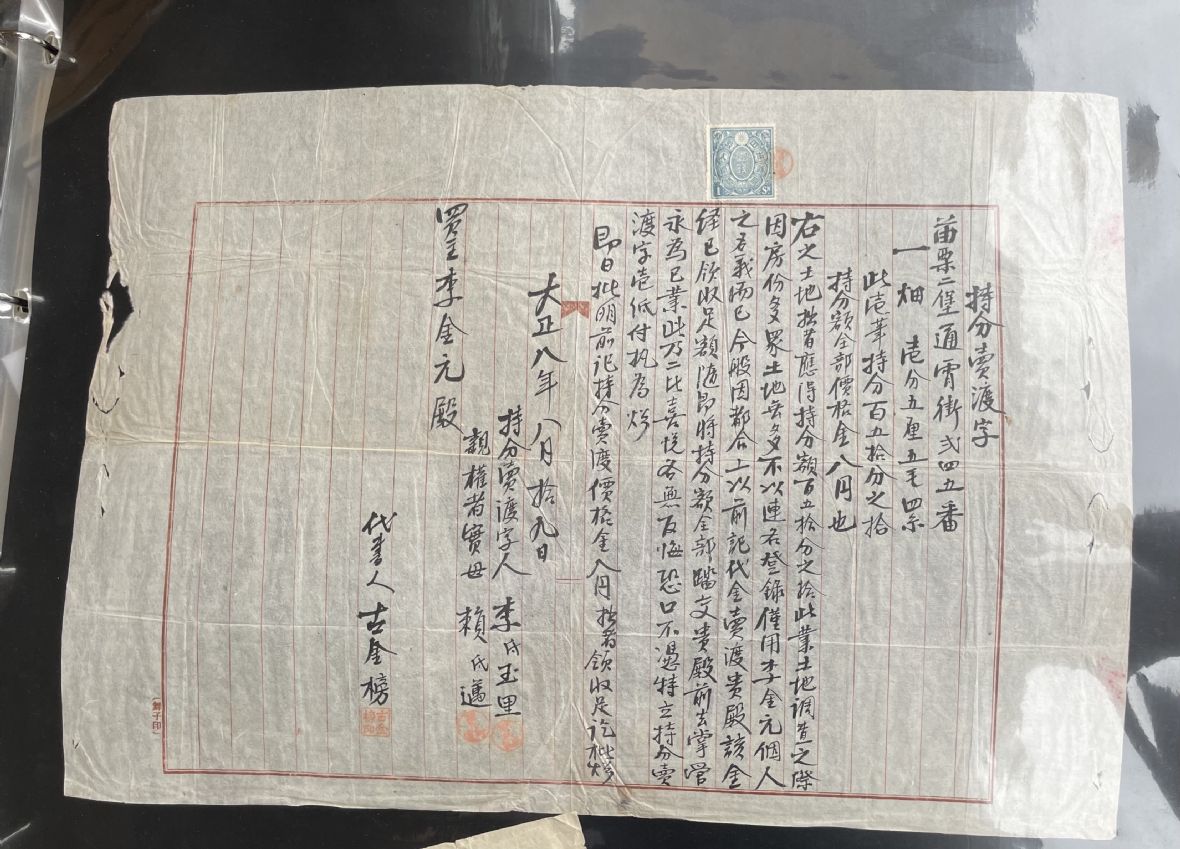 持分賣渡字
苗栗二堡通霄街弍四五番
一畑 壱分五厘五毛四糸
此壱筆持分百五拾分之拾
持分額全部價格金八円也
右之土地拙者應得持分額百五拾分之拾此業土地調查之際
因房份多眾土地無多不以連名登錄僅用李金元個人
之名義而已今般因都合上以前記代金賣渡貴殿該金
經已領收足額隨即將持分額全部踏交貴殿前去掌管
永為已業此乃二比喜悅各無反悔恐口不憑特立持分賣
渡字壱紙付執為炤
即日批明前記持分賣渡價格金八円拙者領收足訖批炤
大正八年八月拾九日
持分賣渡字人 李氏玉里
親權者實母 賴氏邁
買主李金元殿
代書人 古金榜